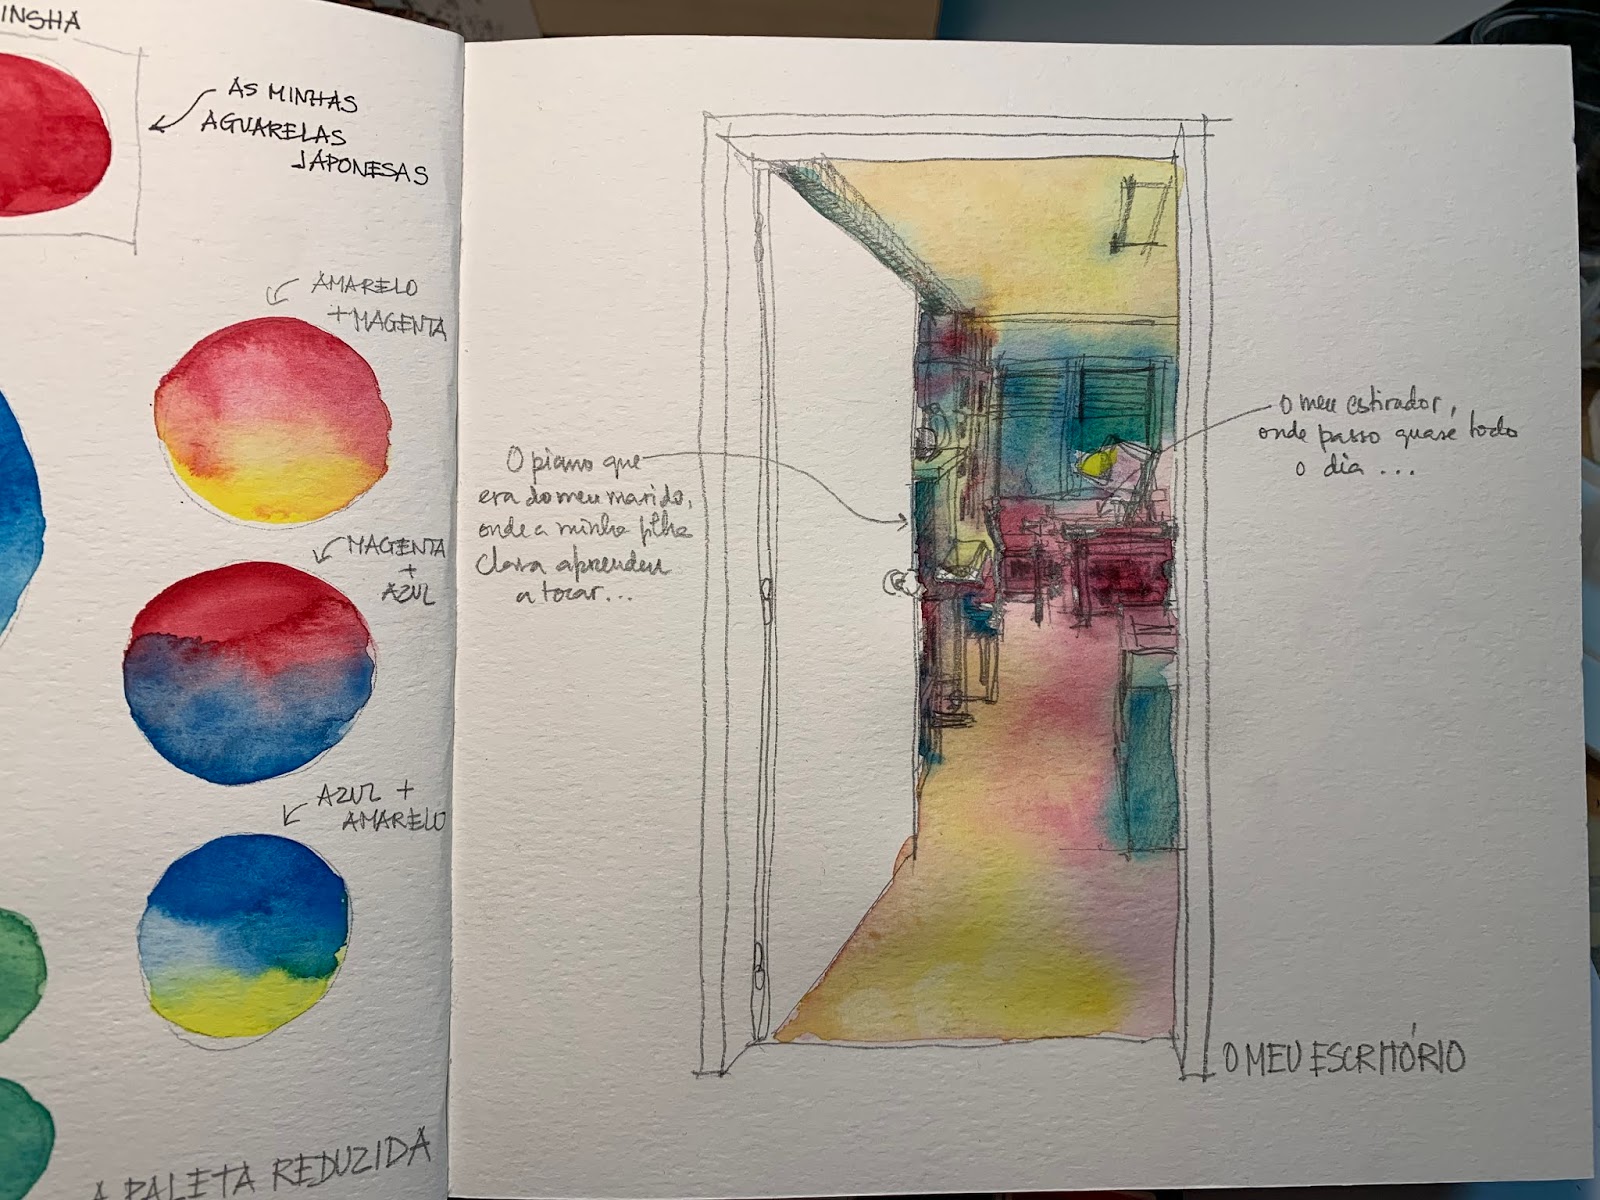 INSHA
AS MINHAS
AGUARELAS
JAPONESAS
AMARELO
+ MAGENTA
MAGENTA
+
AZUL
AZUL +
AMARELO
A PALETA REDUZIDA
O piano que
era do meu marido,
onde a minha filha
Clara aprendeu
a tocar...
O meu estirador,
onde passo quase todo
o dia ...
O MEU ESCRITÓRIO